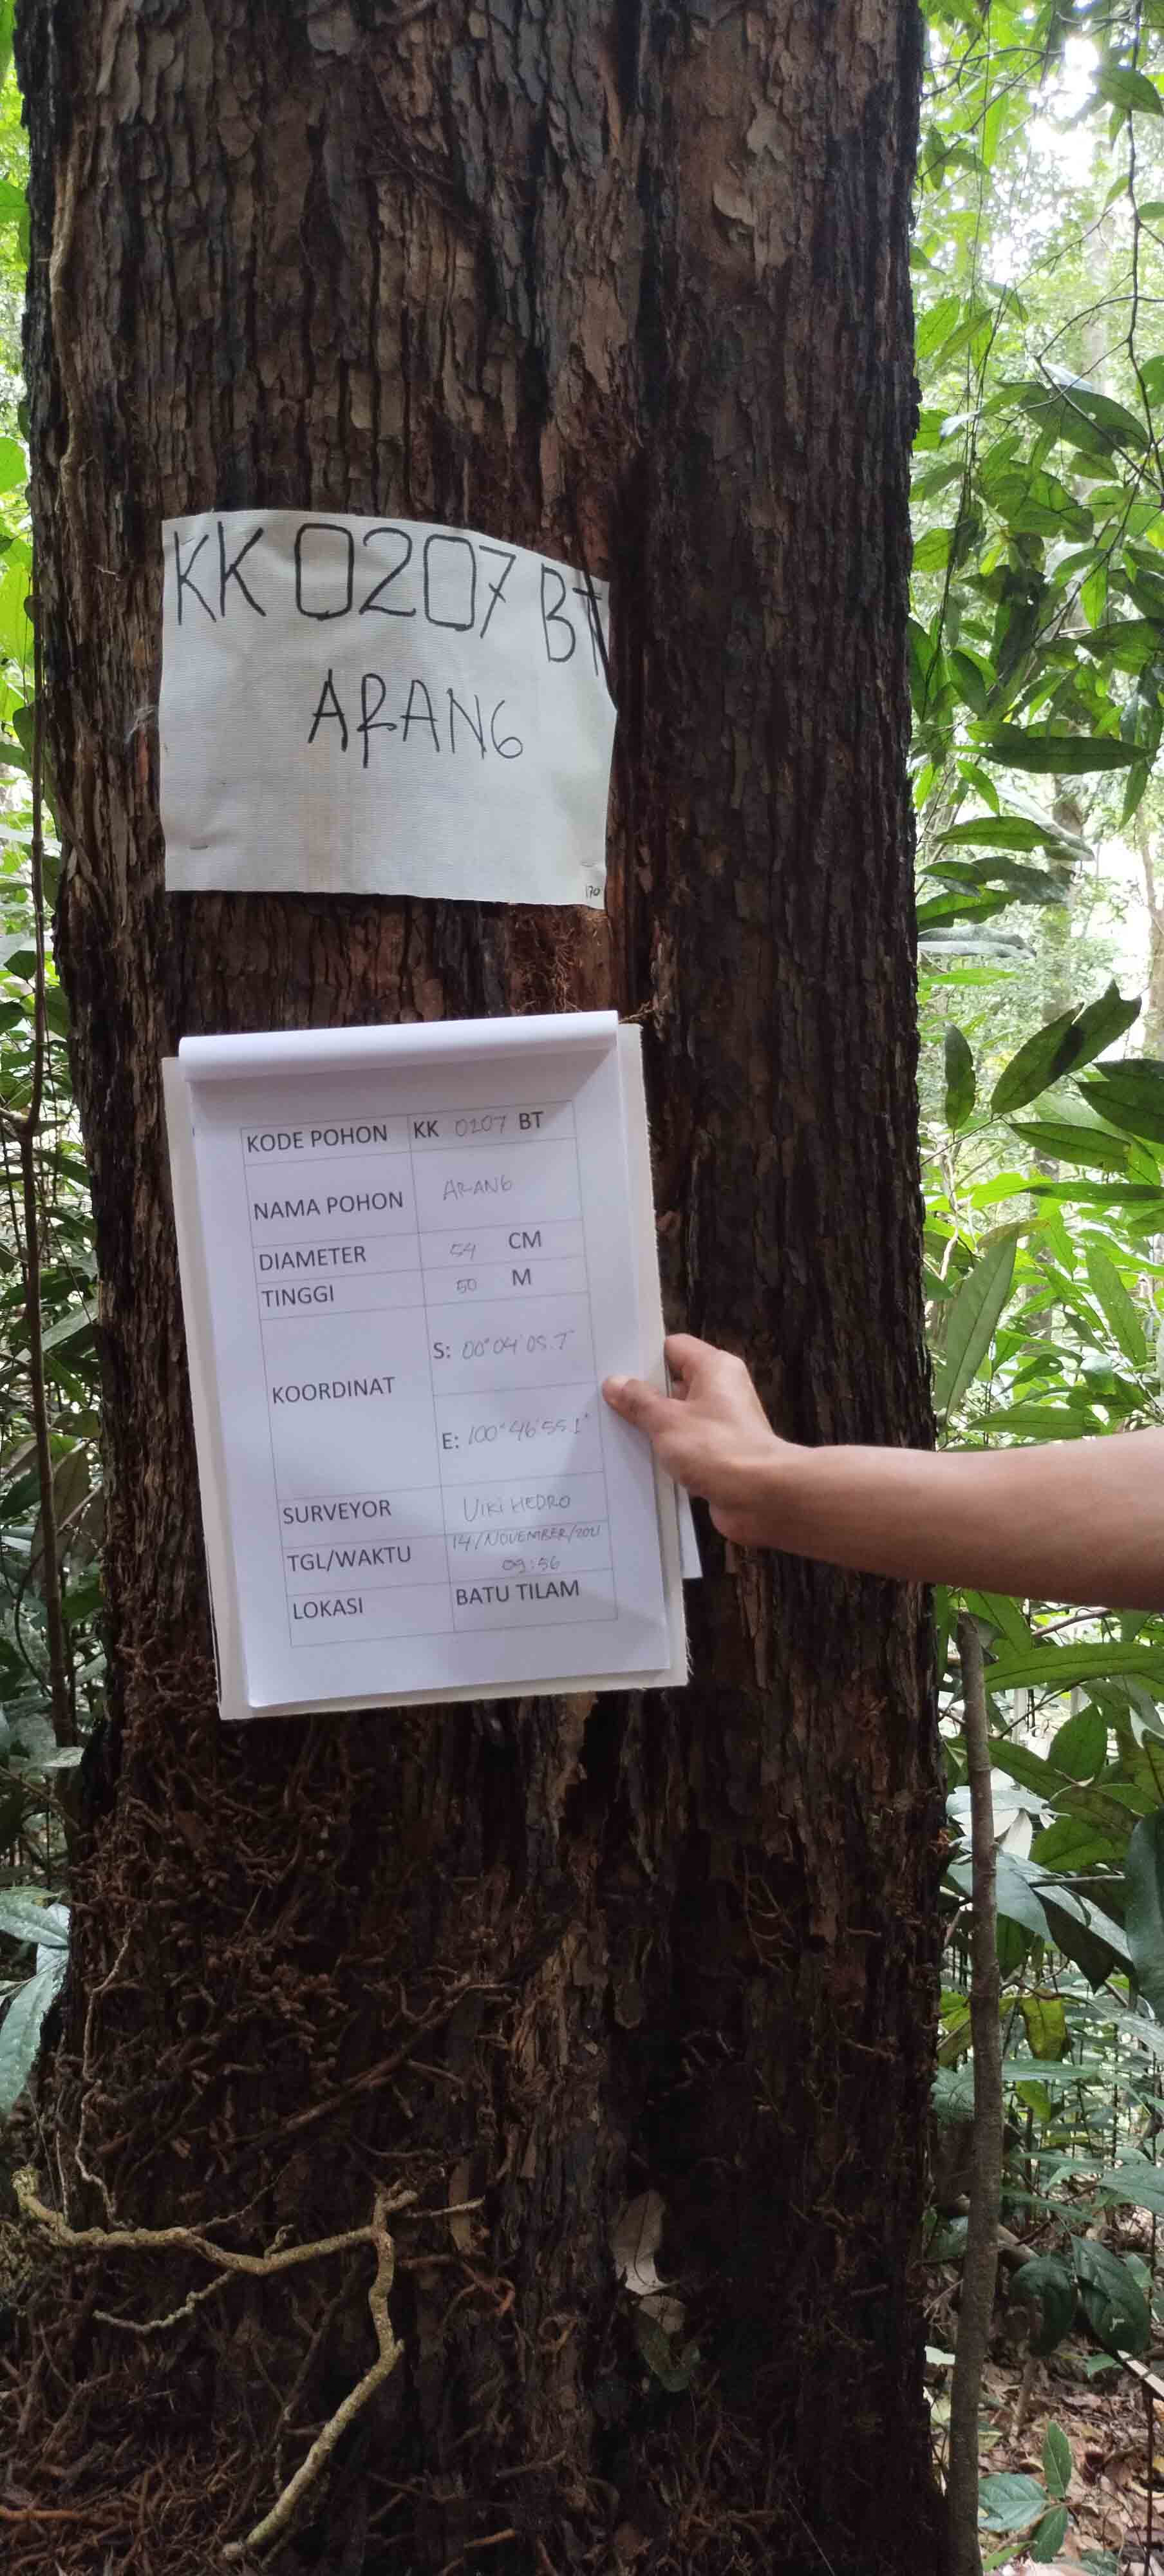 KK 0207 BT
ARANG
170
KODE POHON KK 0207 BT
NAMA POHON ARANG
DIAMETER 54 CM
TINGGI 50 M
KOORDINAT
S: 00°04'05.7"
E: 100°46'55.1"
SURVEYOR VIKI HEDRO
TGL/WAKTU 14/NOVEMBER/2021
09:56
LOKASI BATU TILAM